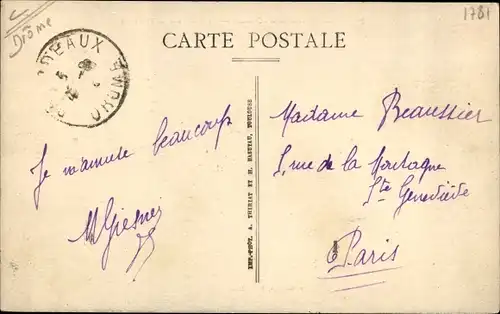 Drôme
1781
CARTE POSTALE
DEAUX
DROME
Je m'amuse beaucoup
Madame Beaussier
5, rue de la Montagne
Ste Geneviève
Paris
IMP.-PHOT. A. THIRIAT ET H. BASUYAU, TOULOUSE